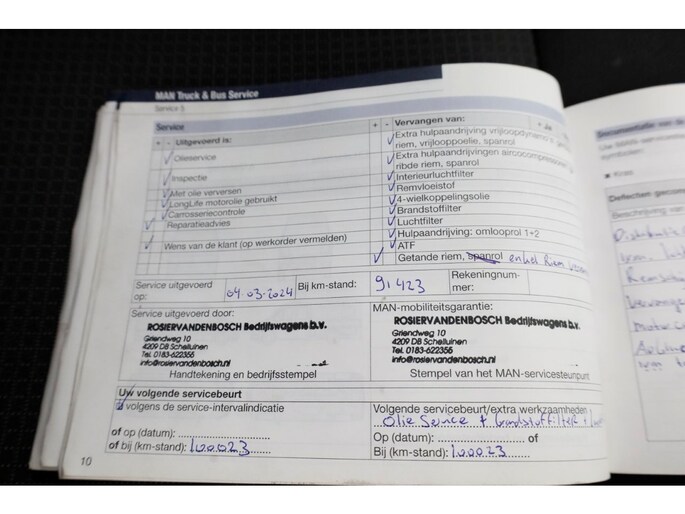 MAN Truck & Bus Service
Service 5
Service
+ - Vervangen van:
+ - Uitgevoerd is:
Extra hulpaandrijving vrijloopdynamo's,
riem, vrijlooppoelie, spanrol
Olieservice
Extra hulpaandrijvingen aircocompressor,
ribde riem, spanrol
Inspectie
Interieurluchtfilter
Met olie verversen
Remvloeistof
LongLife motorolie gebruikt
4-wielkoppelingsolie
Carrosseriecontrole
Brandstoffilter
Reparatieadvies
Luchtfilter
Hulpaandrijving: omlooprol 1+2
Wens van de klant (op werkorder vermelden)
ATF
Getande riem, spanrol enkel Riem
Service uitgevoerd
op: 04.03.2024
Bij km-stand: 91423
Rekeningnum-
mer:
Service uitgevoerd door:
MAN-mobiliteitsgarantie:
ROSIERVANDENBOSCH Bedrijfswagens b.v.
Griendweg 10
4209 DB Schelluinen
Tel. 0183-622356
info@rosiervandenbosch.nl
Handtekening en bedrijfsstempel
ROSIERVANDENBOSCH Bedrijfswagens b.v.
Griendweg 10
4209 DB Schelluinen
Tel. 0183-622356
info@rosiervandenbosch.nl
Stempel van het MAN-servicesteunpunt
Uw volgende servicebeurt
volgens de service-intervalindicatie
of op (datum):
of bij (km-stand): 100023
Volgende servicebeurt/extra werkzaamheden
Olie Service + brandstoffilter +
Op (datum): of
Bij (km-stand): 100023
10